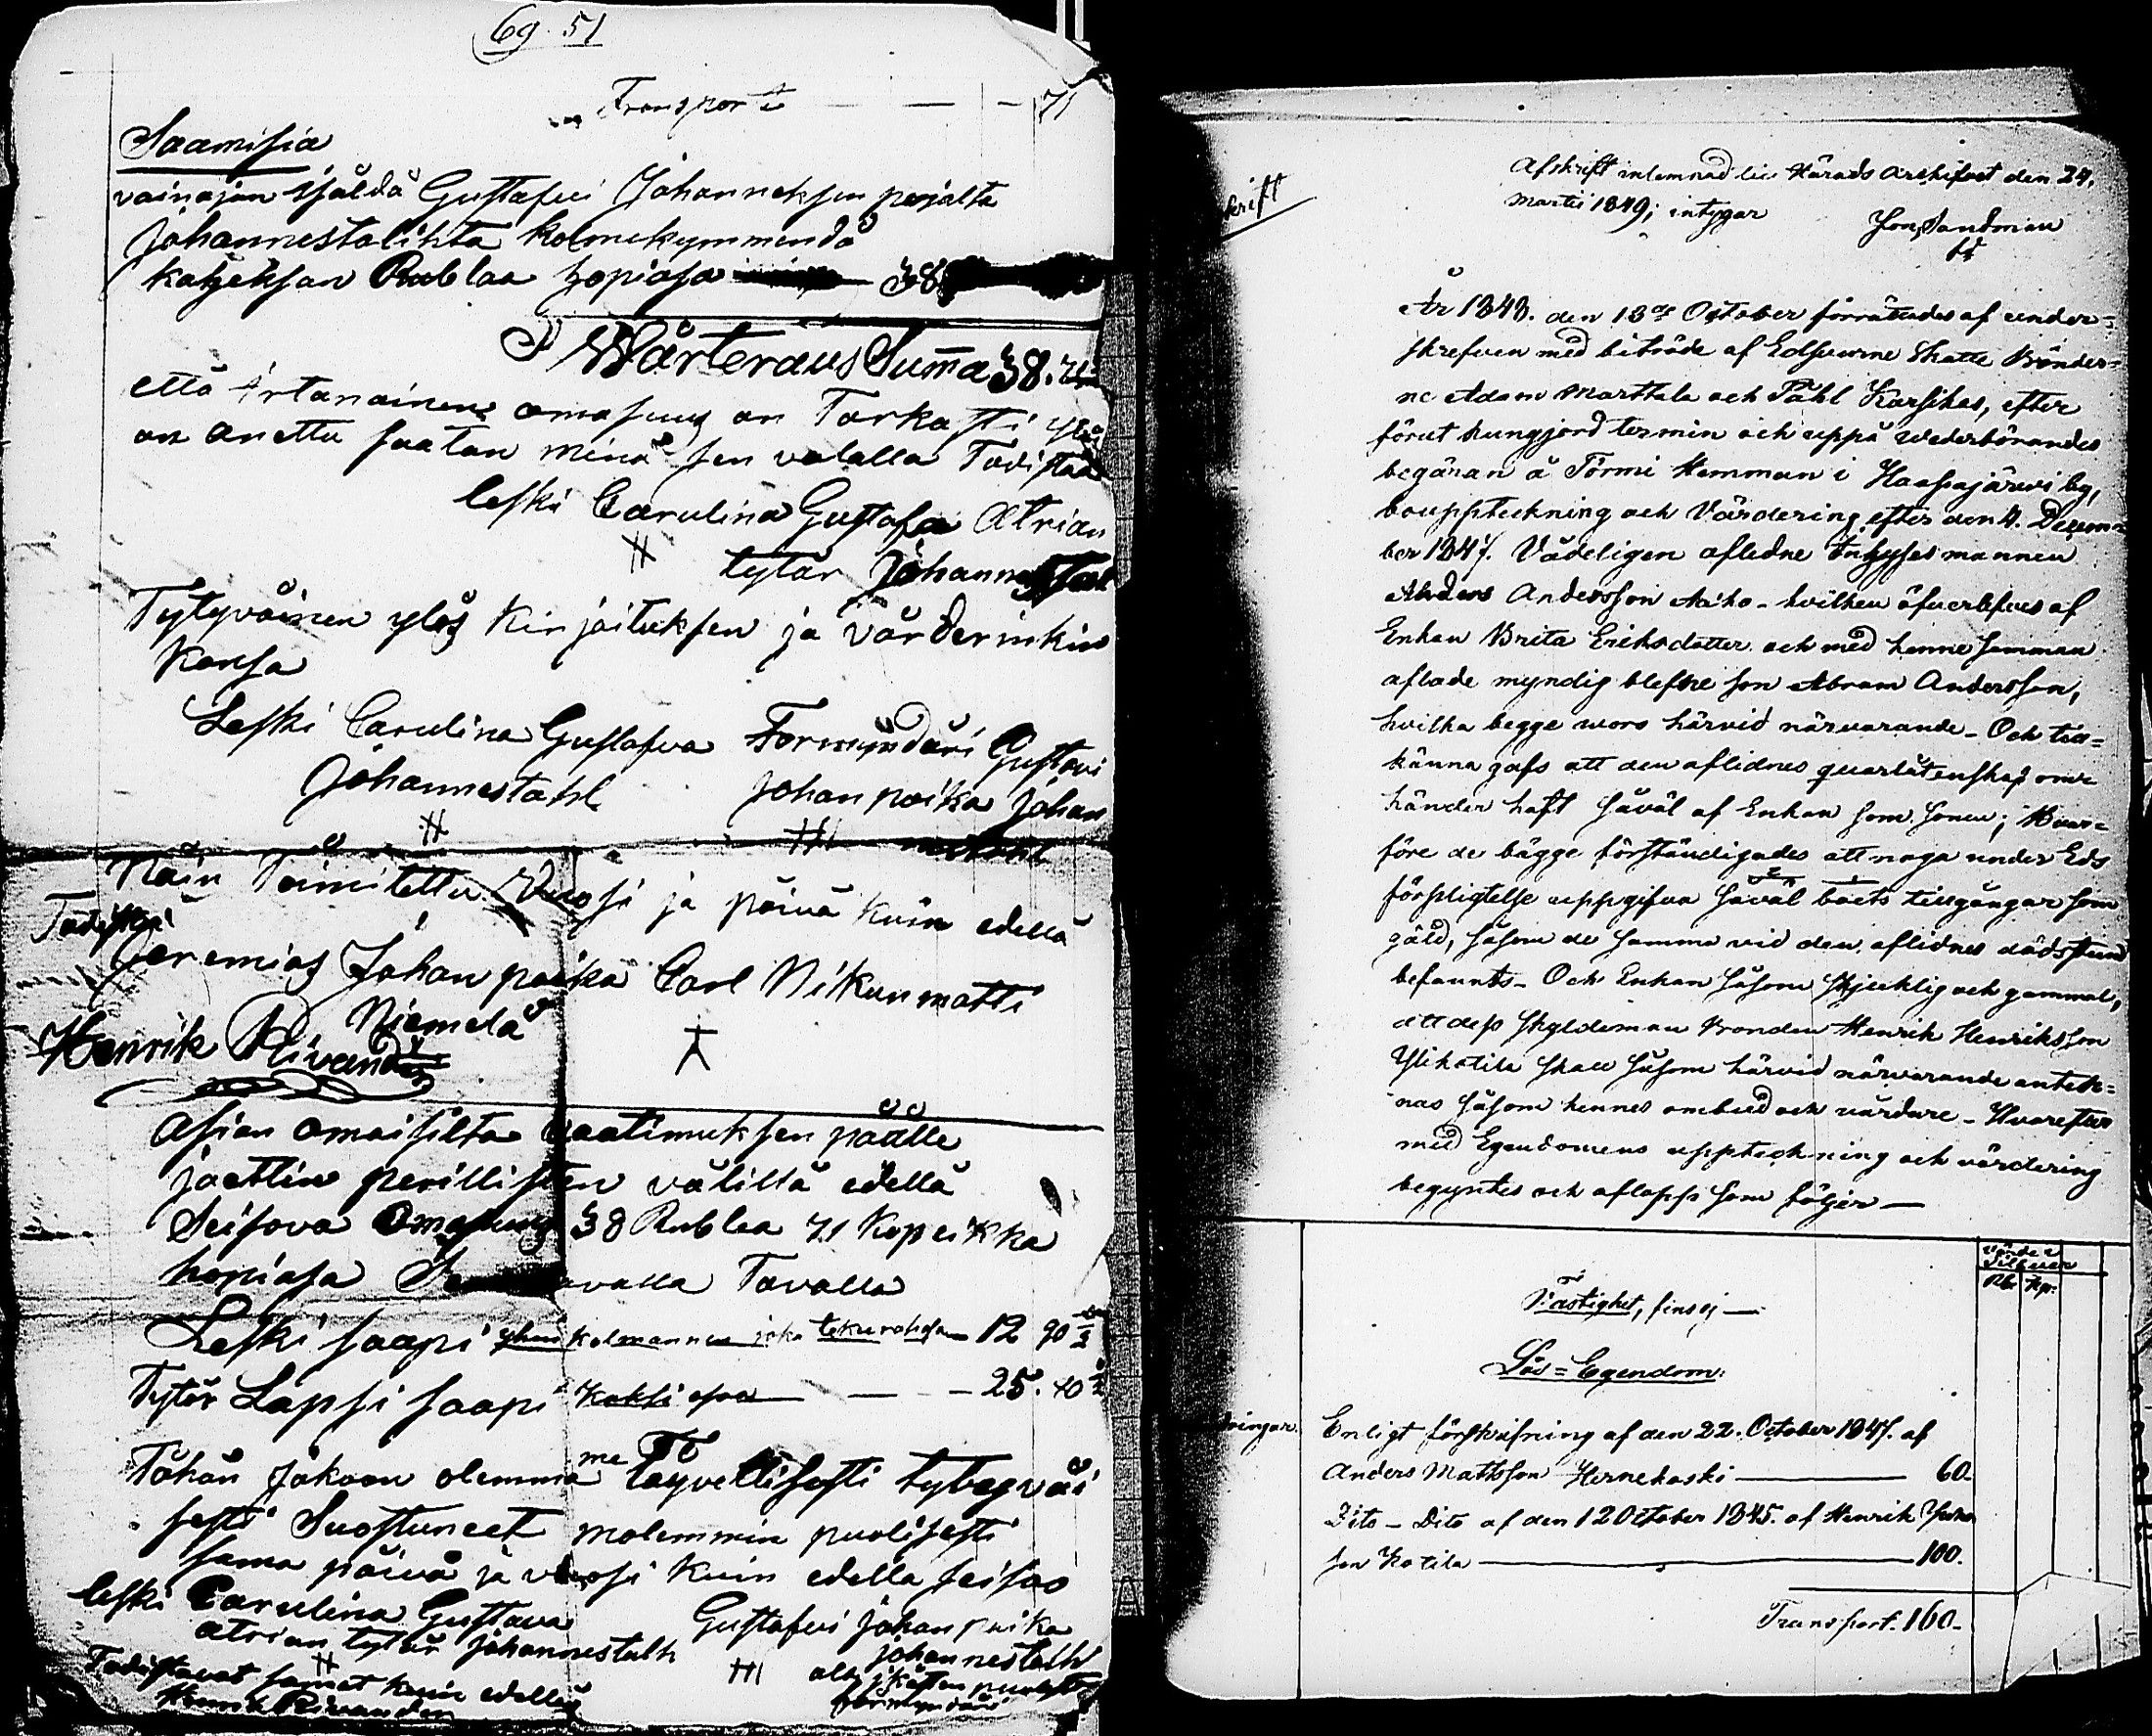 69. 51
Transport — — 71
Saamisia
vainajan veljeldä Gustafvi Johanneksen pojalta
Johannestalilta kolmekymmendä
kahjeksan Rublaa hopiasa 38
Wärteraus Summa 38. 71
että irtanainen omasuus on Tarkasti ylös
on anettu saatan minä sen valalla Todistaa
leski Carulina Gustafa Atrian
tytär Johannestahl
Tytyväinen ylös kirjoituksen ja värderinkin
Kansa
Leski Carulina Gustafva Formyndäri Gustavi
Johannestahl Johan poika Johan
nestahl
Näin Toimitettu Vuosi ja päivä kuin edellä
Todistaa
Jeremias Johan poika Carl Nikunmatti
Niemelä
Henrik Rivander
Asian omaisilta vaatimuksen päälle
jaettin perillisten välillä edellä
Seisova Omasuus 38 Rublaa 71 Kopeikka
hopiasa avalla Tavalla
Leski saapi yhen kolmannen joka teku rahasa 12 90
Tytär Lapsi saapi kaksi osaa — — 25. 40
Tähän jakoon olemma me TT täyvellisesti tytyväi
sesti Suostuneet molemmin puolisesti
sama päivä ja vuosi kuin edellä seisoo
leski Carulina Gustava Gustafvi Johan poika
Atrian tytär Johannestalh Johannestalh
Todistavat samat kuin edellä alaikäsen puolesta
Henrik Rivander formyndäri
skrift
Afskrift inlemnad till Härads Arkifvet den 24.
Martii 1849; intygar
Jon Sandman
År 1848. den 18de October förrättades af under=
skrefven med biträde af Edsvurne Skatte Bönder=
ne Adam Marttala och Påhl Karsikas, efter
förut kungjord termin och uppå wederbörandes
begäran å Törmi Hemman i Haapajärvi by,
bouppteckning och Värdering efter den 4. Decem=
ber 1847. Vådeligen aflidne Inhysesmannen
Anders Andersson Aho - hvilken öfverlefves af
Enkan Brita Eriksdotter och med henne samman
aflade myndig blefne son Abram Andersson,
hvilka begge woro härvid närvarande - Och till=
känna gafs att den aflidnes qvarlåtenskap om
händer haft såväl af Enkan som sonen; Hvar=
före de bägge förständigades att noga under Eds
förpligtelse uppgifva såväl boets tillgångar som
gäld, såsom de samma vid den aflidnes dödsstund
befannts - Och Enkan såsom skjuklig och gammal,
att dess skyldeman Bonden Henrik Henriksson
Ylikotila skall såsom härvid närvarande anteck=
nas såsom hennes ombud och vårdare - Hvarefter
med Egendomens uppteckning och värdering
begyntes och aflopp som följer —
Värde i
Silfver
Rbr Kop:
Fastighet, fins ej —
Lös = Egendom:
dringar. Enligt förskrifning af den 22. October 1847. af
Anders Mattsson Hernekoski — 60.
Dito - Dito af den 12 October 1845. af Henrik
son Kotila — 100.
Transport. 160.